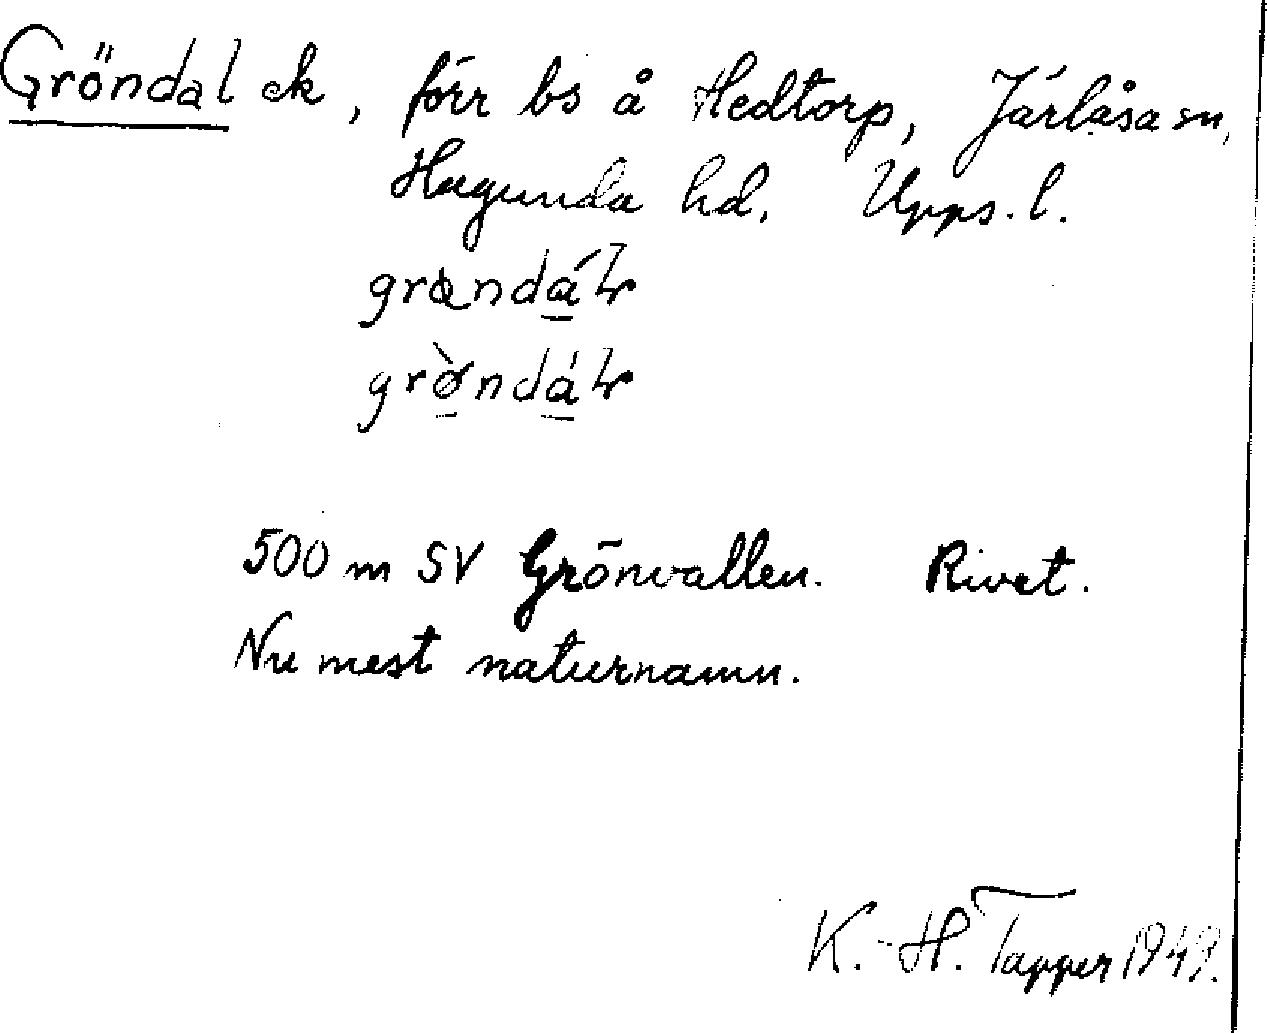 Gröndal ek, förr bs å Hedtorp, Järlåsa sn,
Hagunda hd, Upps. l.
500 m SV Grönvallen. Rivet.
Nu mest naturnamn.
K.-H. Tapper 1949.